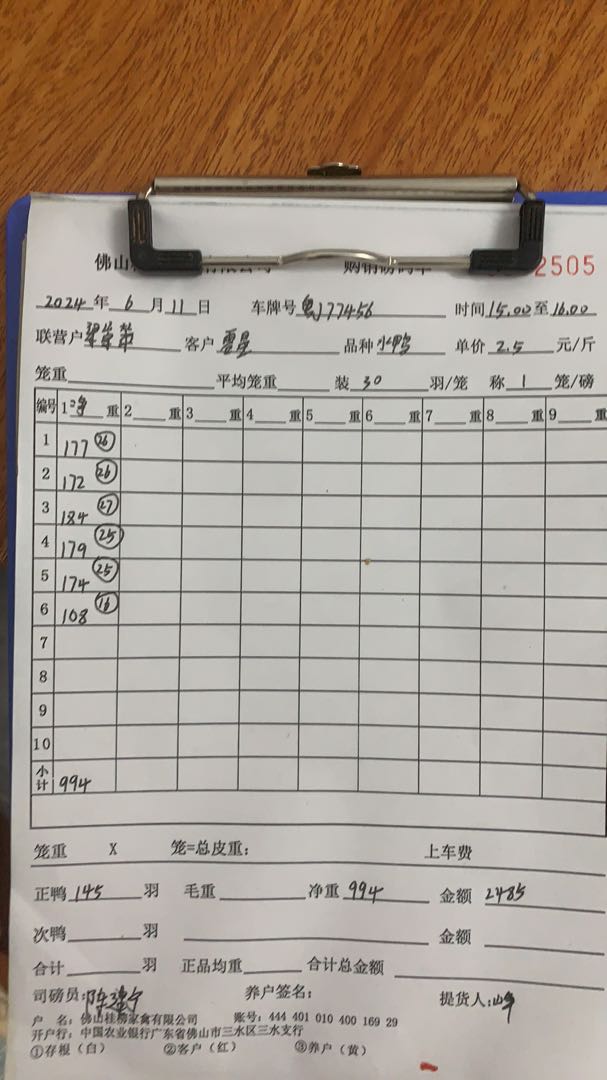 佛山
购销磅码单 2505
2024年6月11日 车牌号 粤J77456 时间15.00至16.00
联营户 客户 品种 水鸭 单价 2.5 元/斤
笼重 平均笼重 装 30 羽/笼 称 1 笼/磅
编号 1净重 2 重 3 重 4 重 5 重 6 重 7 重 8 重 9 重
1 177 26
2 172 26
3 184 27
4 179 25
5 174 25
6 108 16
7
8
9
10
小计 994
笼重 X 笼=总皮重: 上车费
正鸭 145 羽 毛重 净重 994 金额 2485
次鸭 羽 金额
合计 羽 正品均重 合计总金额
司磅员: 养户签名: 提货人:
户 名: 佛山桂柳家禽有限公司 账号: 444 401 010 400 169 29
开户行: 中国农业银行广东省佛山市三水区三水支行
①存根（白） ②客户（红） ③养户（黄）